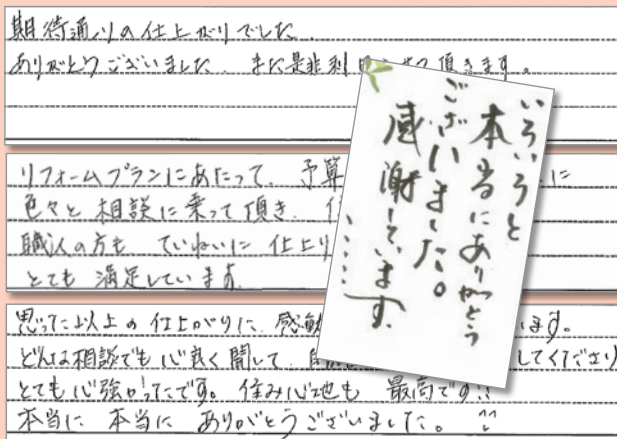 期待通りの仕上がりでした。
ありがとうございました。また是非利用させて頂きます。
リフォームプランにあたって、予算 に
色々と相談に乗って頂き、
職人の方も ていねいに 仕上
とても 満足しています。
思った以上の仕上がりに、感動 います。
どんな相談でも心良く聞いて してくださり
とても心強かったです。住み心地も 最高です!!
本当に 本当に ありがとうございました。^^
いろいろと
本当にありがとう
ございました。
感謝しています。